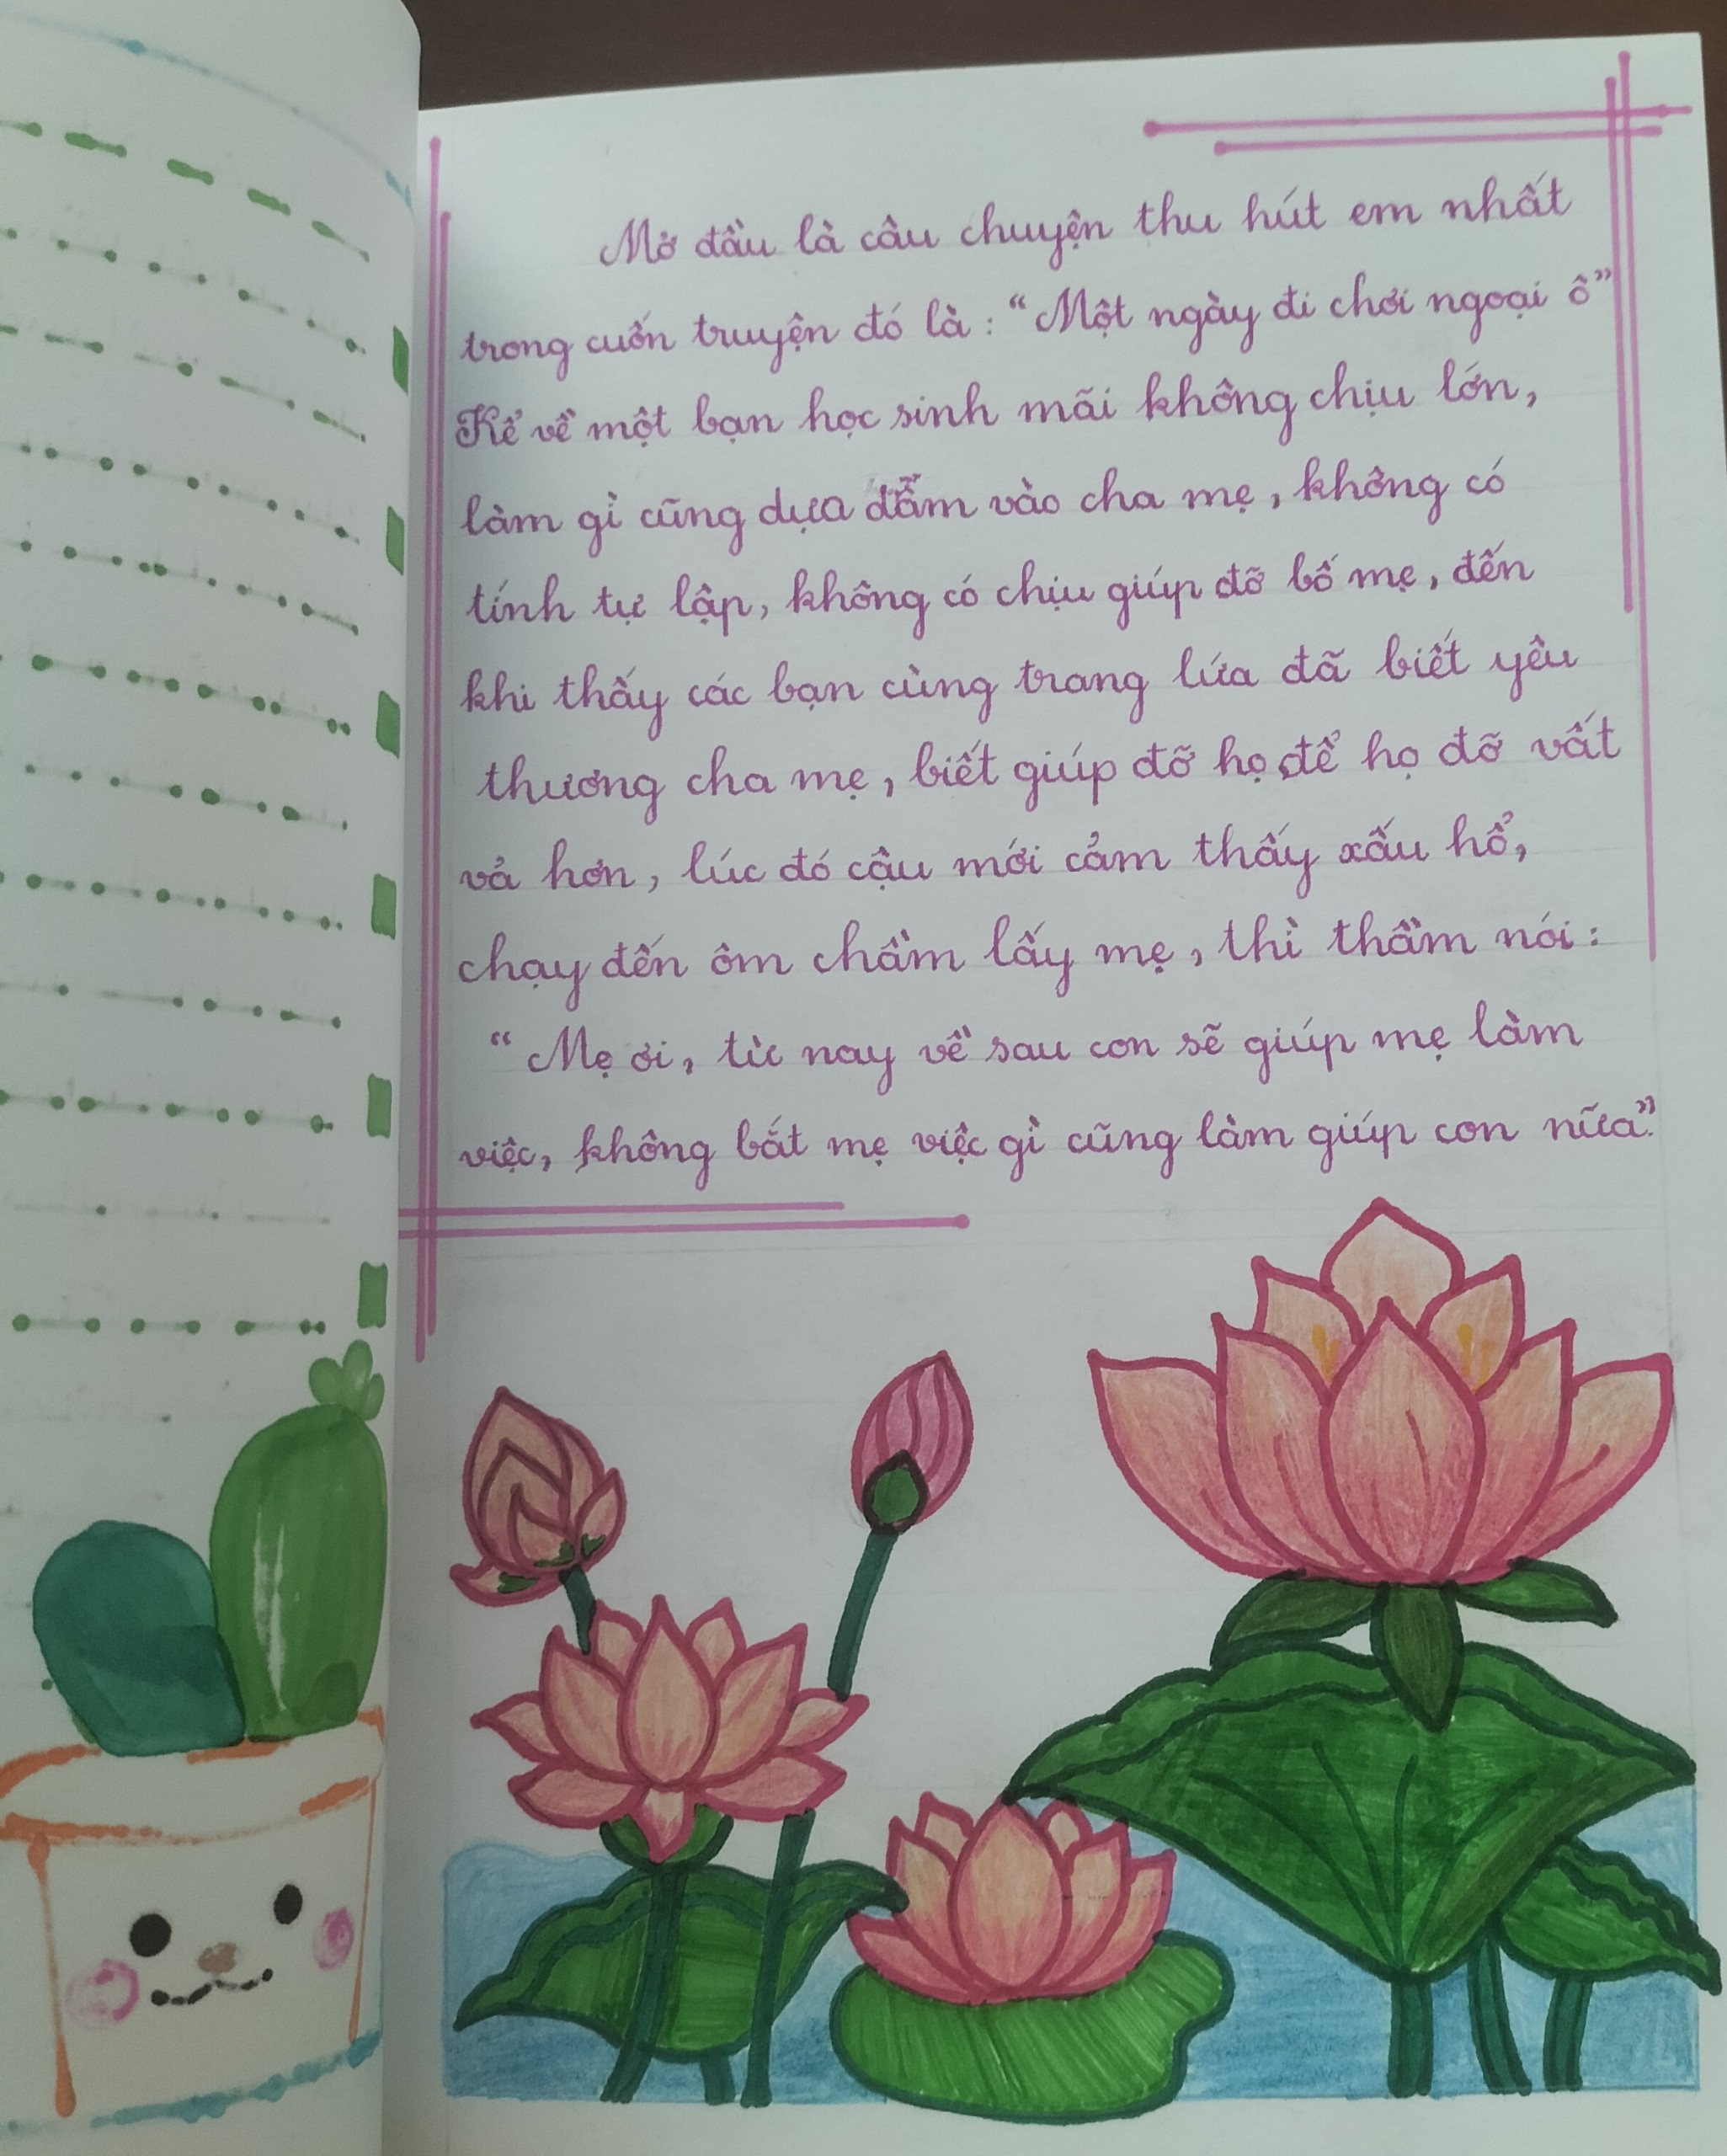 Mở đầu là câu chuyện thu hút em nhất
trong cuốn truyện đó là: “Một ngày đi chơi ngoại ô”
Kể về một bạn học sinh mãi không chịu lớn,
làm gì cũng dựa dẫm vào cha mẹ, không có
tính tự lập, không có chịu giúp đỡ bố mẹ, đến
khi thấy các bạn cùng trang lứa đã biết yêu
thương cha mẹ, biết giúp đỡ họ để họ đỡ vất
vả hơn, lúc đó cậu mới cảm thấy xấu hổ,
chạy đến ôm chầm lấy mẹ, thì thầm nói:
“Mẹ ơi, từ nay về sau con sẽ giúp mẹ làm
việc, không bắt mẹ việc gì cũng làm giúp con nữa”.